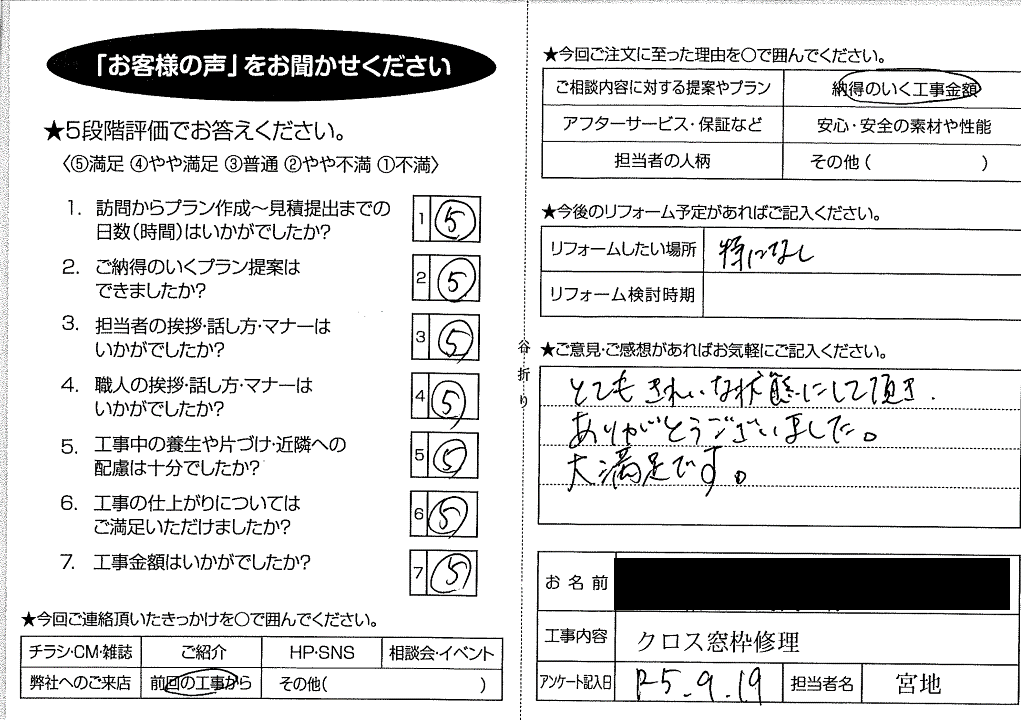 「お客様の声」をお聞かせください
★5段階評価でお答えください。
〈⑤満足 ④やや満足 ③普通 ②やや不満 ①不満〉
1. 訪問からプラン作成～見積提出までの
日数(時間)はいかがでしたか?
1 5
2. ご納得のいくプラン提案は
できましたか?
2 5
3. 担当者の挨拶・話し方・マナーは
いかがでしたか?
3 5
4. 職人の挨拶・話し方・マナーは
いかがでしたか?
4 5
5. 工事中の養生や片づけ・近隣への
配慮は十分でしたか?
5 5
6. 工事の仕上がりについては
ご満足いただけましたか?
6 5
7. 工事金額はいかがでしたか?
7 5
★今回ご連絡頂いたきっかけを○で囲んでください。
チラシ・CM・雑誌 ご紹介 HP・SNS 相談会・イベント
弊社へのご来店 前回の工事から その他( )
谷折り
★今回ご注文に至った理由を○で囲んでください。
ご相談内容に対する提案やプラン 納得のいく工事金額
アフターサービス・保証など 安心・安全の素材や性能
担当者の人柄 その他( )
★今後のリフォーム予定があればご記入ください。
リフォームしたい場所 特になし
リフォーム検討時期
★ご意見・ご感想があればお気軽にご記入ください。
とてもきれいな状態にして頂き.
ありがとうございました。
大満足です。
お名前
工事内容 クロス窓枠修理
アンケート記入日 R5.9.19 担当者名 宮地